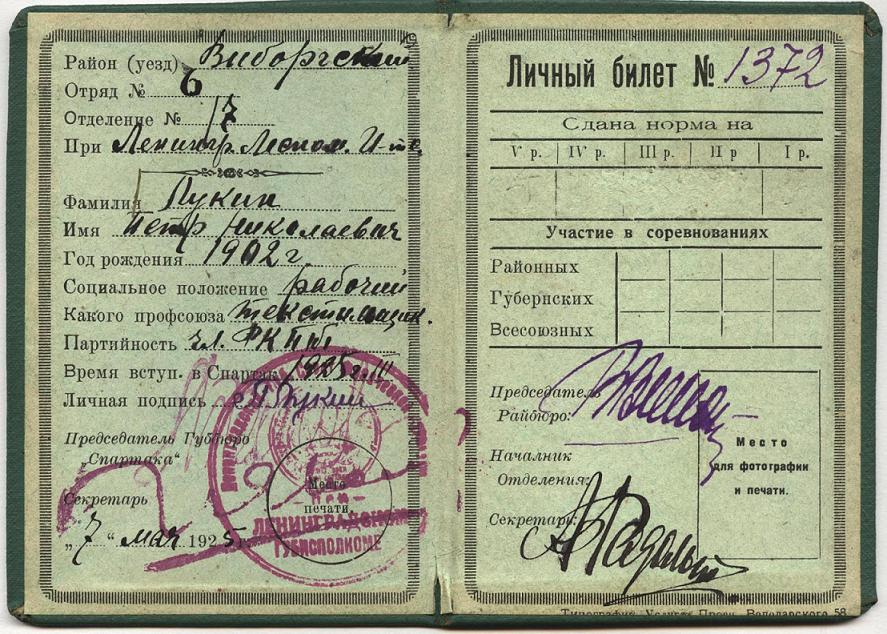 Район (уезд) Выборгский
Отряд № 6
Отделение № 17
При Ленингр. И-те.
Фамилия Лукин
Имя Петр Николаевич
Год рождения 1902 г
Социальное положение рабочий
Какого профсоюза текстильщик.
Партийность чл. РКП
Время вступ. в Спартак 1925 г. III
Личная подпись П Лукин
Председатель Губбюро
„Спартака“
Секретарь
„7“ мая 1925 г.
Место
печати
ПРИ
ЛЕНИНГРАДСКОМ
ГУБИСПОЛКОМЕ
Личный билет № 1372
Сдана норма на
V р. IV р. III р. II р I р.
Участие в соревнованиях
Районных
Губернских
Всесоюзных
Председатель
Райбюро:
Началник
Отделения:
Секретарь:
Место
для фотографии
и печати.
Володарского 58